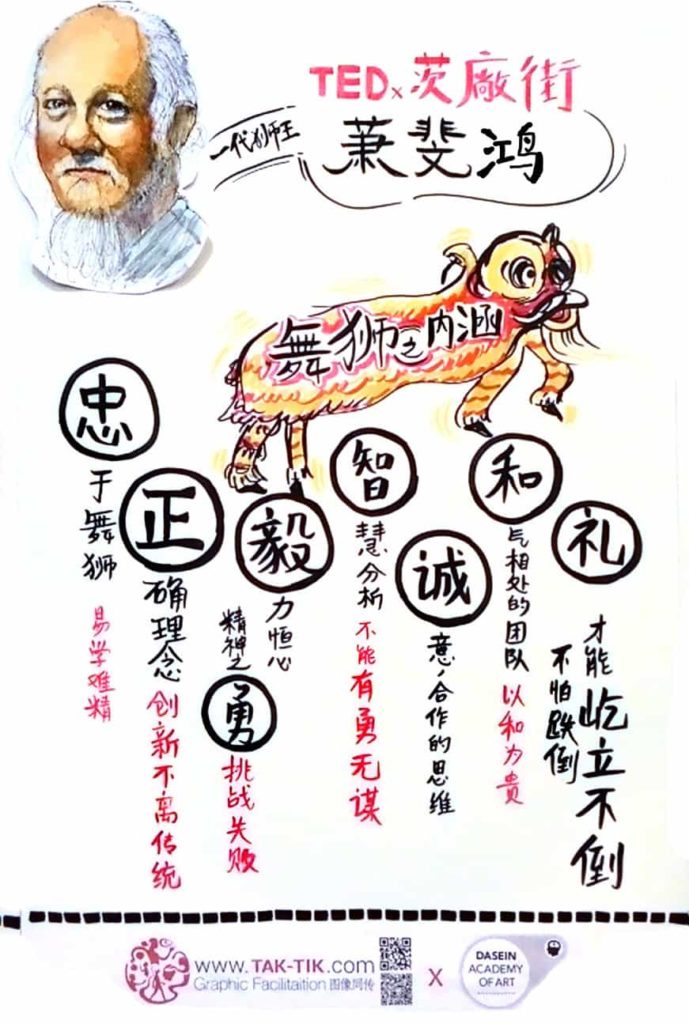 TEDx茨廠街
一代狮王
萧斐鸿
舞狮之内涵
忠于舞狮
易学难精
正确理念
创新不离传统
毅力恒心
精神之勇
挑战失败
智慧分析
不能有勇无谋
诚意,合作的思维
和气相处的团队
以和为貴
礼
不怕跌倒
才能屹立不倒
www.TAK-TIK.com
Graphic Facilitaition 图像同传
X
DASEIN
ACADEMY
OF ART